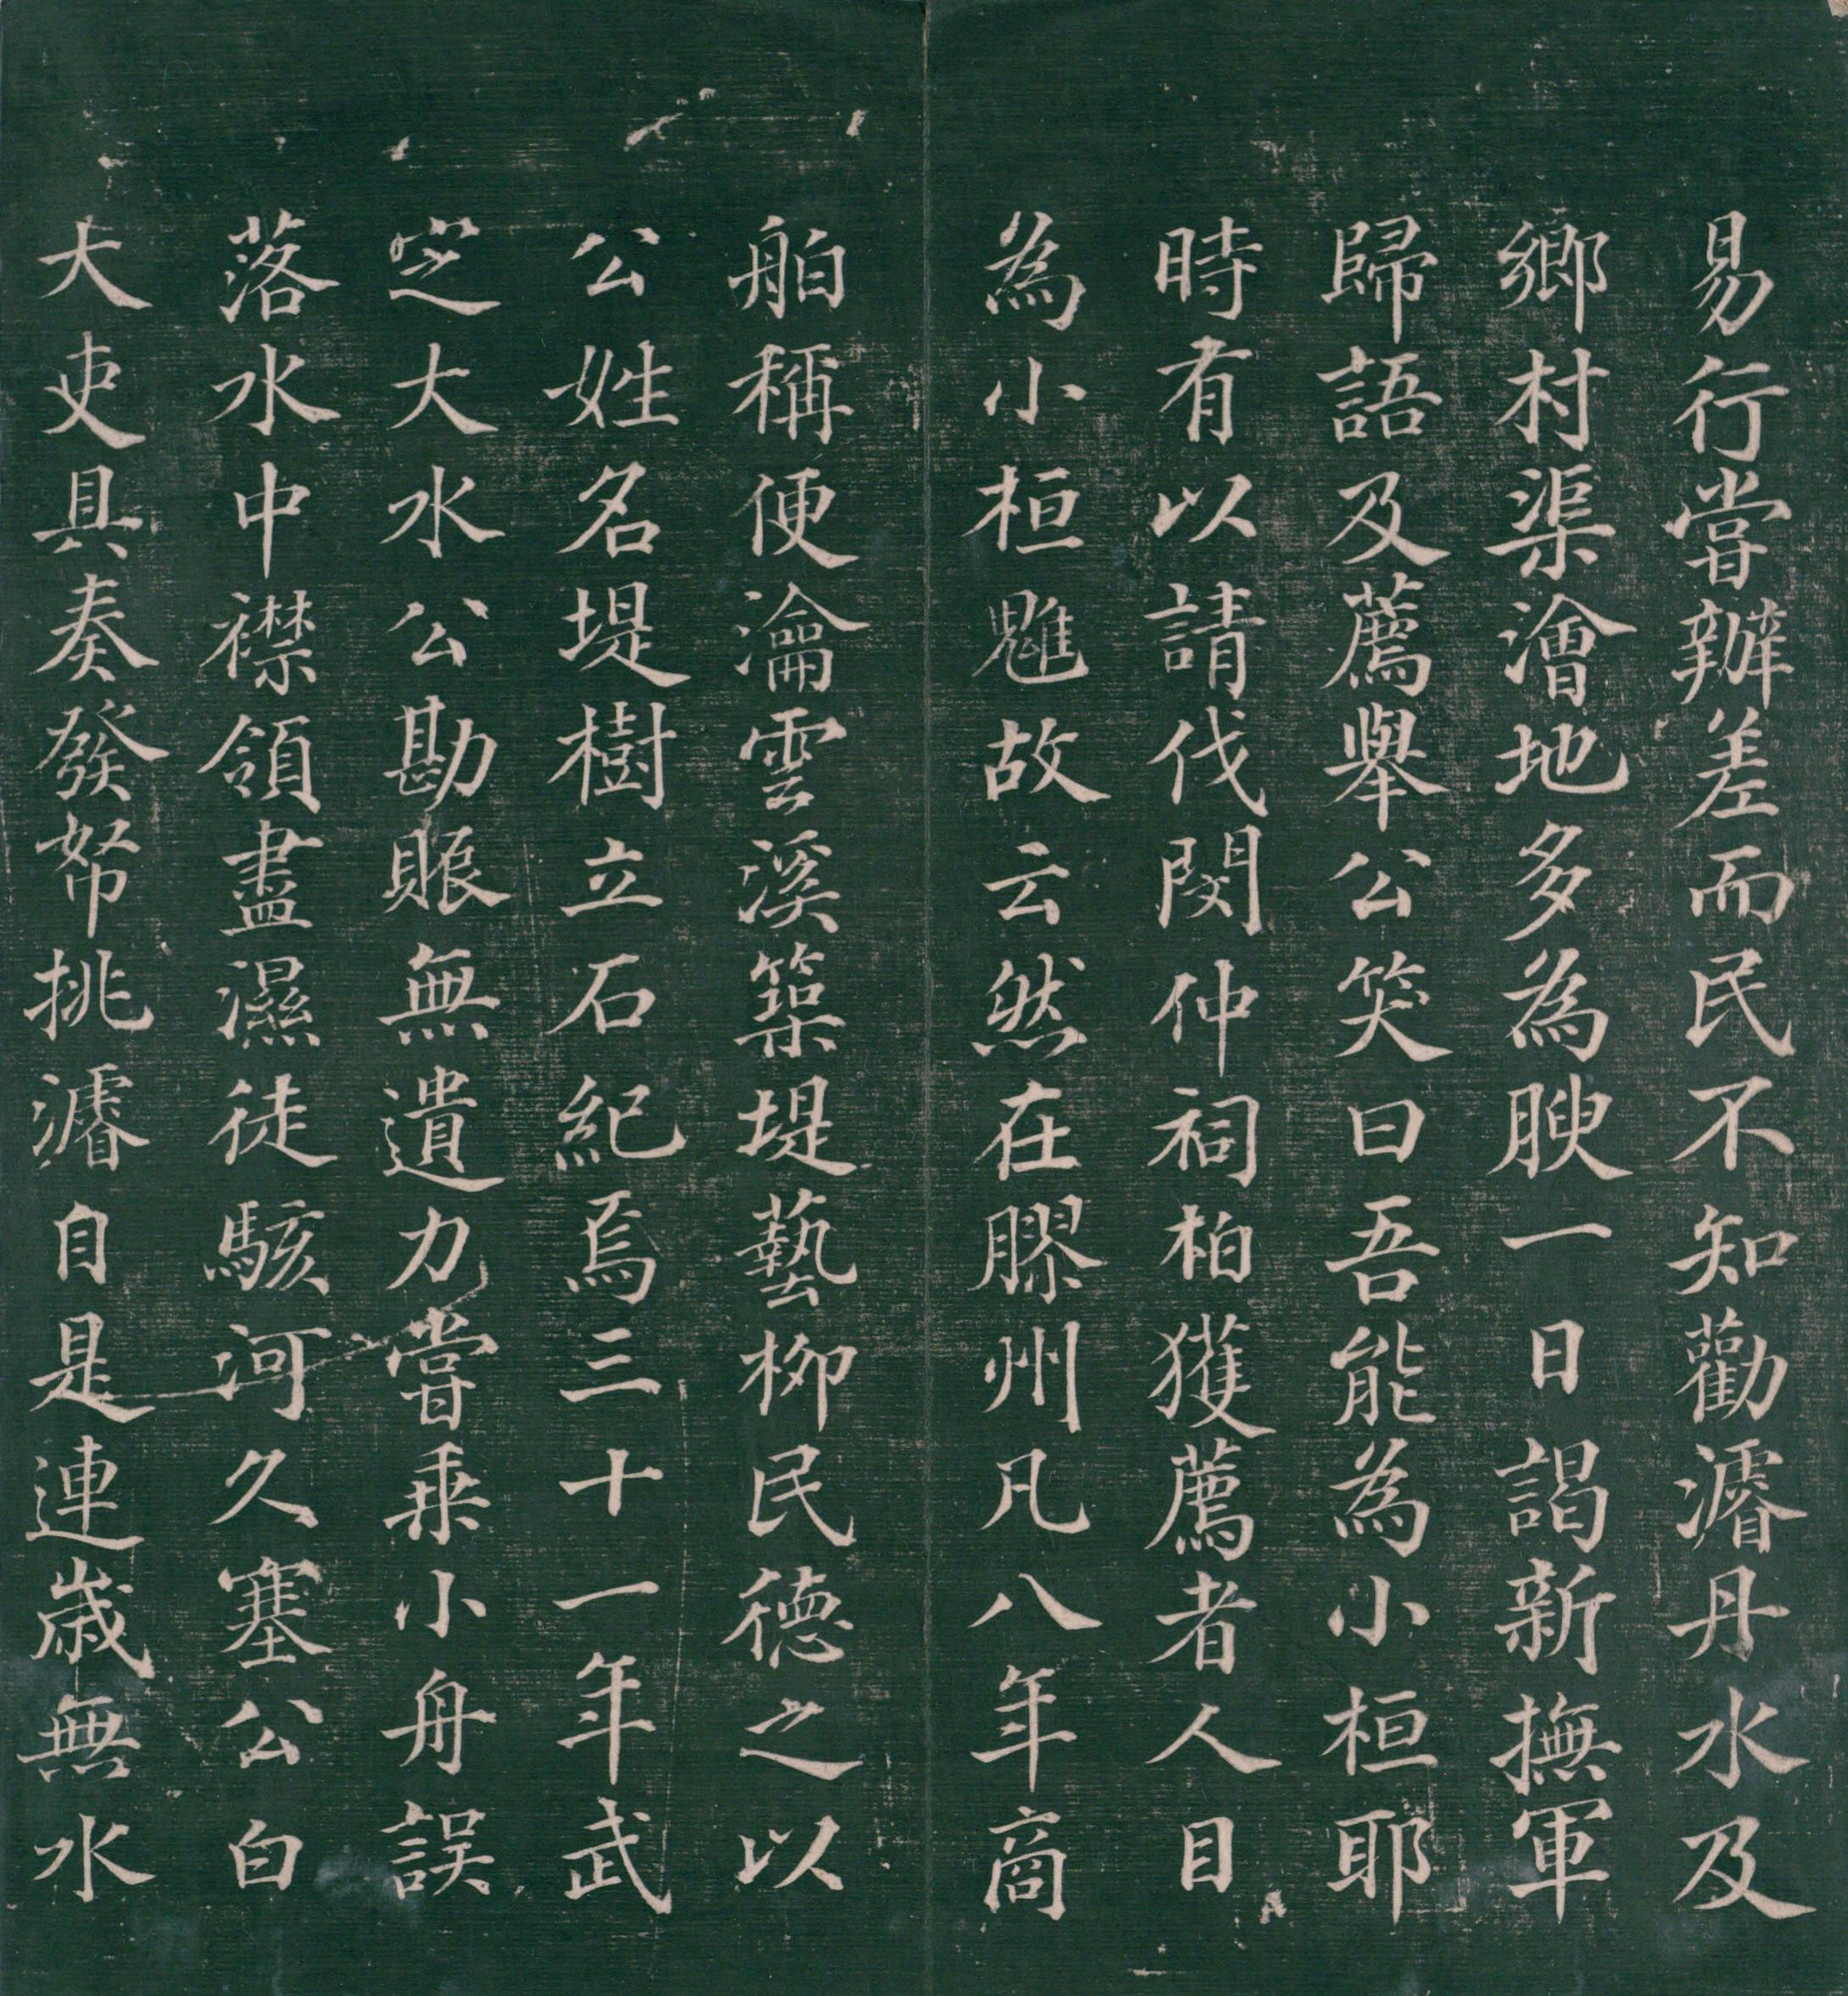 易行嘗辦差而民不知勸濬丹水及
鄉村渠澮地多為腴一日謁新撫軍
歸語及薦舉公笑曰吾能為小桓耶
時有以請伐閔仲祠柏獲薦者人目
為小桓魋故云然在膠州凡八年商
舶稱便瀹雲溪築堤藝柳民德之以
公姓名堤樹立石紀焉三十一年武
定大水公勘賑無遺力嘗乘小舟誤
落水中襟領盡濕徒駭河久塞公白
大吏具奏發帑挑濬自是連歲無水